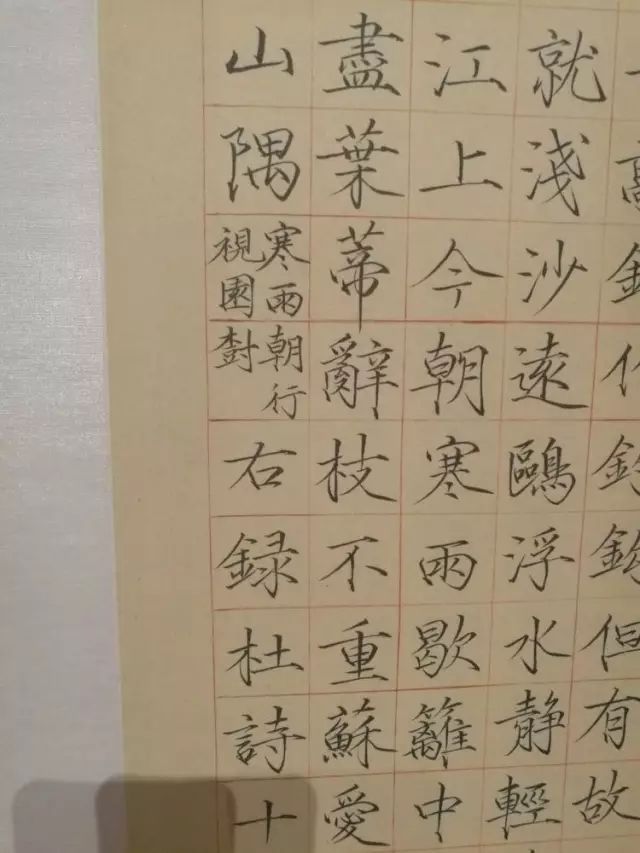 但有故
就淺沙遠鷗浮水静輕
江上今朝寒雨歇籬中
盡葉蒂辭枝不重蘇愛
山隅寒雨朝行視園樹右録杜詩十